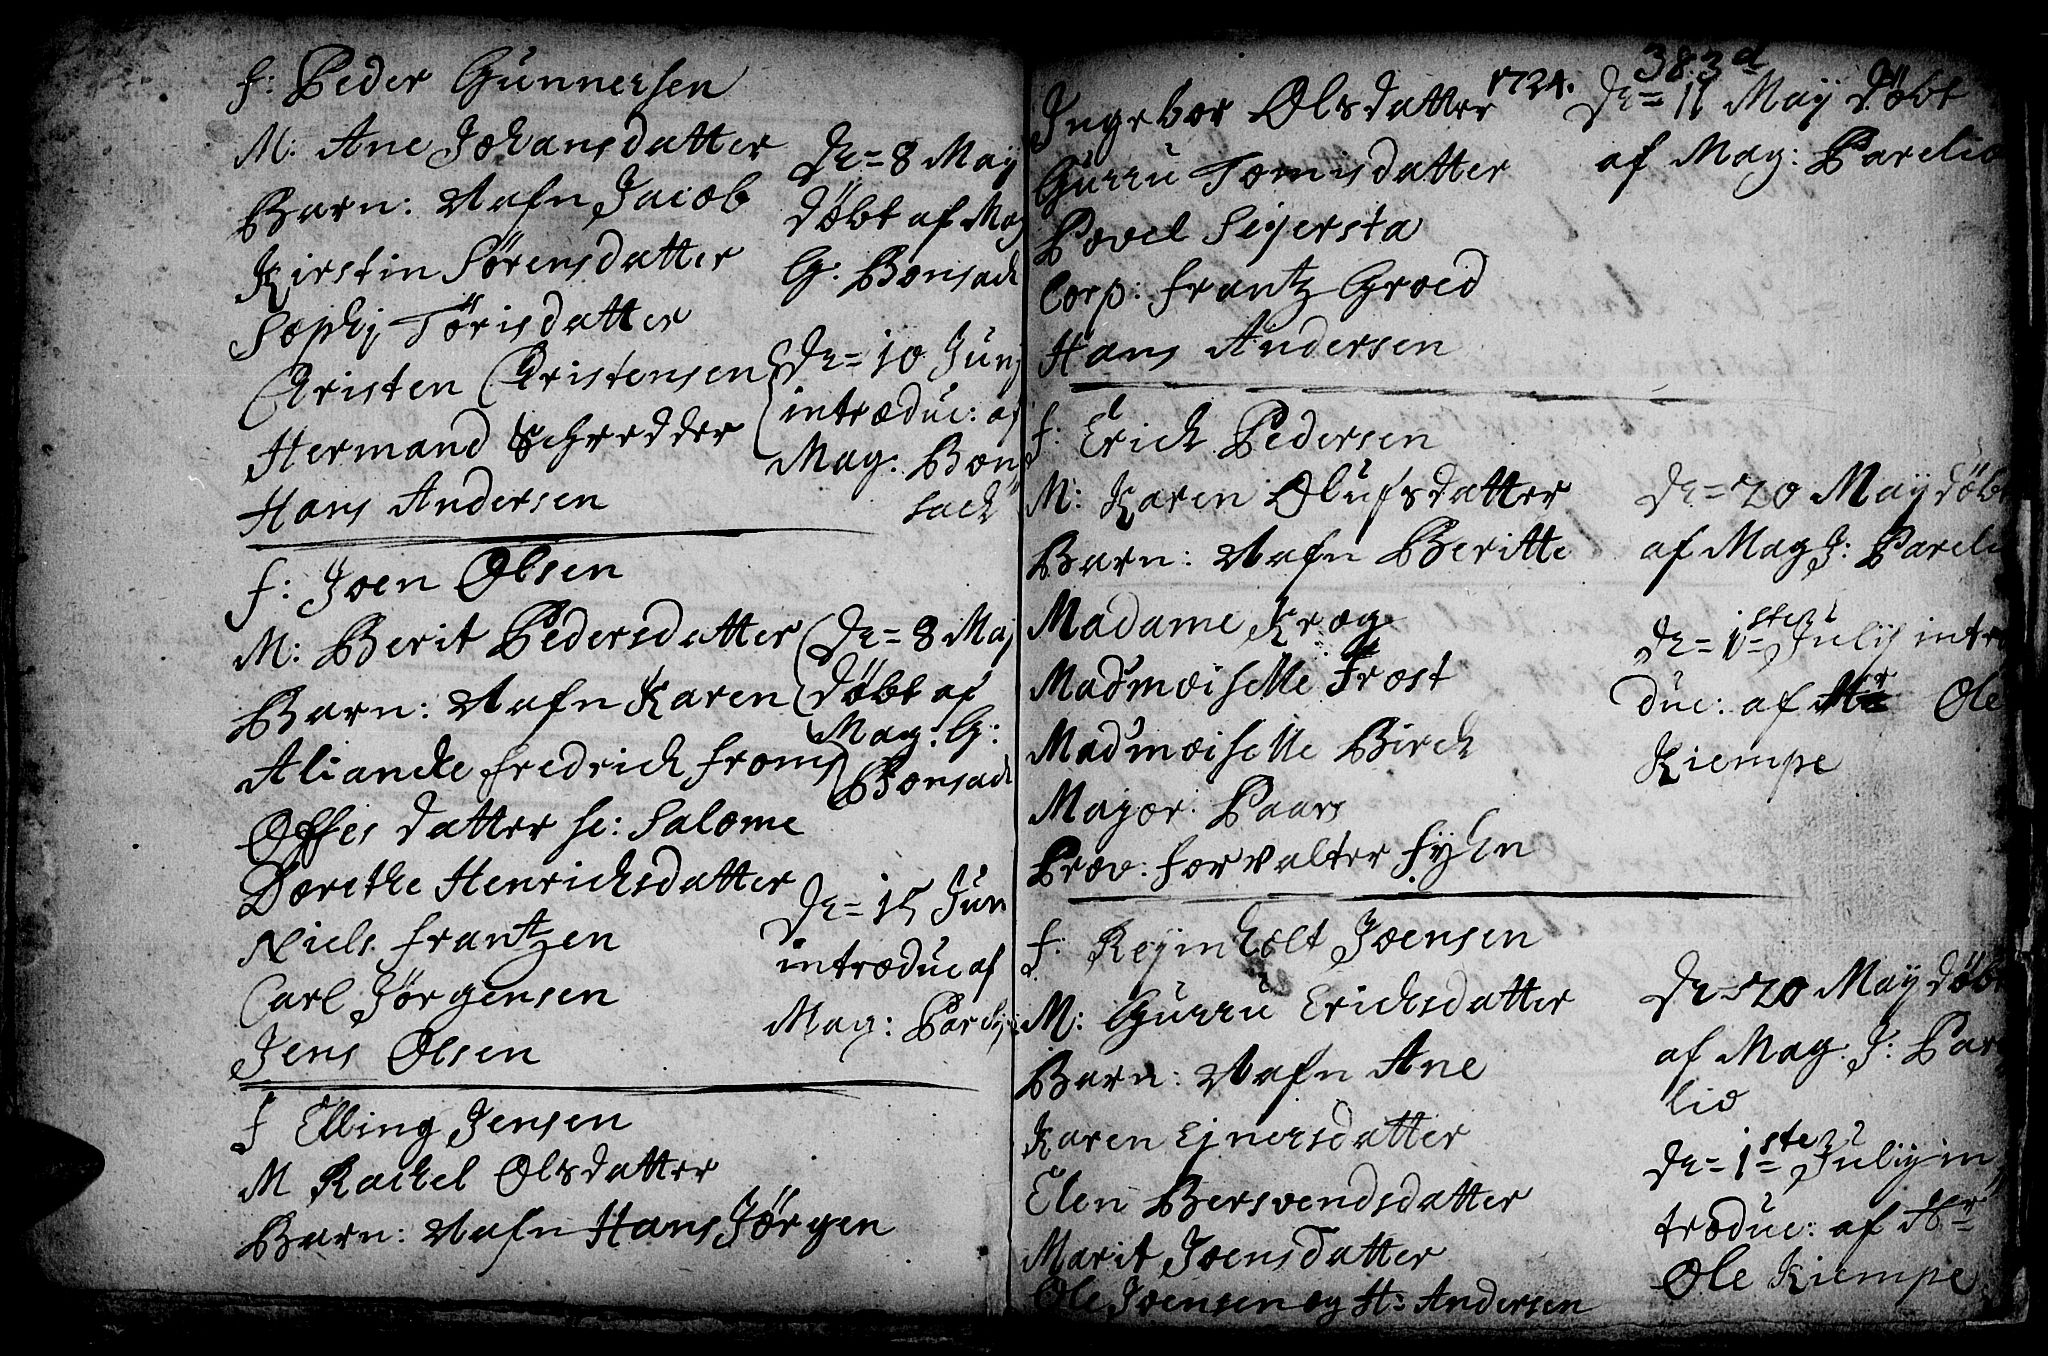 f: Peder Gunnersen
M: Ane Johansdatter
Barn: Nafn Jacob
Kirstin Sörensdatter
Sophij Törisdatter
Christen Christensen
Hermand Schredder
Hans Andersen
De = 8 May
döbt af Mag
G: Bonsack
De = 10 Junj
introduc: af
Mag: Bon
sack
f: Joen Olsen
M: Berit Pedersdatter
Barn: Nafn Karen
Aliancke fredrick froms
Offes datter se: Salome
Dorethe Henrichsdatter
Niels frantzen
Carl Jörgensen
Jens Olsen
De = 8 Maj
döbt af
Mag: G:
Bonsack
De = 15 Jun
introduc af
Mag:
f Elling Jensen
M Rachel Olsdatter
Barn: Nafn Hans Jörgen
1724.
383
Ingebor Olsdatter
Gurru Tomisdatter
Povel Seyersta
Corp: frantz Groed
Hans Andersen
De = 11 Maÿ döbt
af Mag: Parelio
f: Erick Pedersen
M: Karen Olufsdatter
Barn: Nafn Beritte
Madame Krog
Madmoiselle Frost
Madmoiselle Birck
Major: Paars
Prov: forvalter fyhn
De = 20 Maÿ döbt
af Mag J: Pareli
De = 1ste Julij intro
duc: af Hr Ole
Kiempe
f: Reijnholt Joensen
M: Gurru Ericksdatter
Barn: Nafn Ane
Karen Ejnersdatter
Elen Bersvendsdatter
Marit Joensdatter
Ole Joensen og H: Andersen
De = 20 Maÿ döbt
af Mag. J: Pare
lio
De = 1ste Julij in
troduc: af Hr
Ole Kiempe